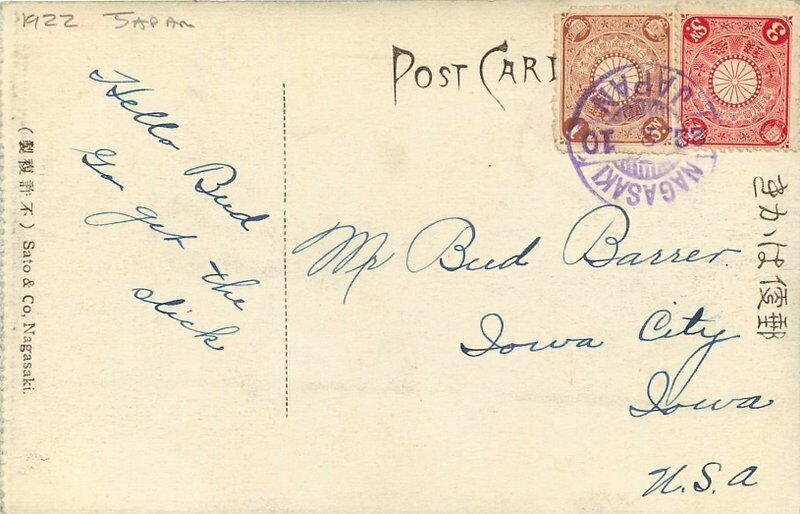 1922 JAPAN
POST CARD
Hello Bud
Go get the
slick
Mr Bud Barrer.
Iowa City
Iowa
U.S.A
きかは便郵
(製複許不) Sato & Co, Nagasaki.
3 SN
NAGASAKI
JAPAN
10